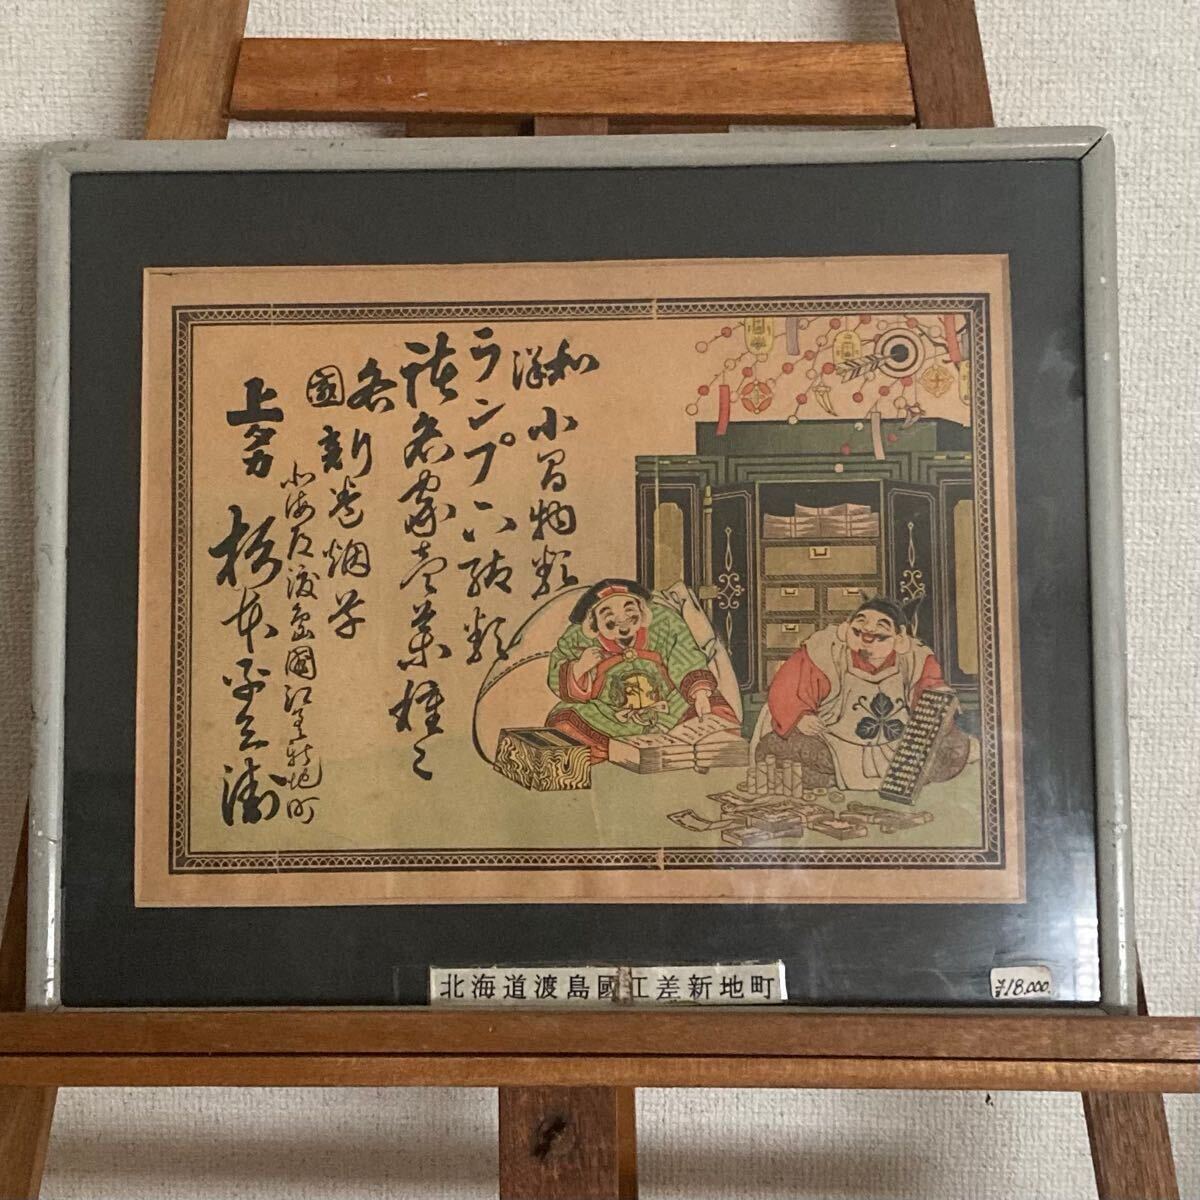 和洋小間物類
ランプ六諸類
諸名家売薬種々
各國新巻烟草
北海道渡島國江差新地町
上名 杉本
北海道渡島國江差新地町
¥18,000.